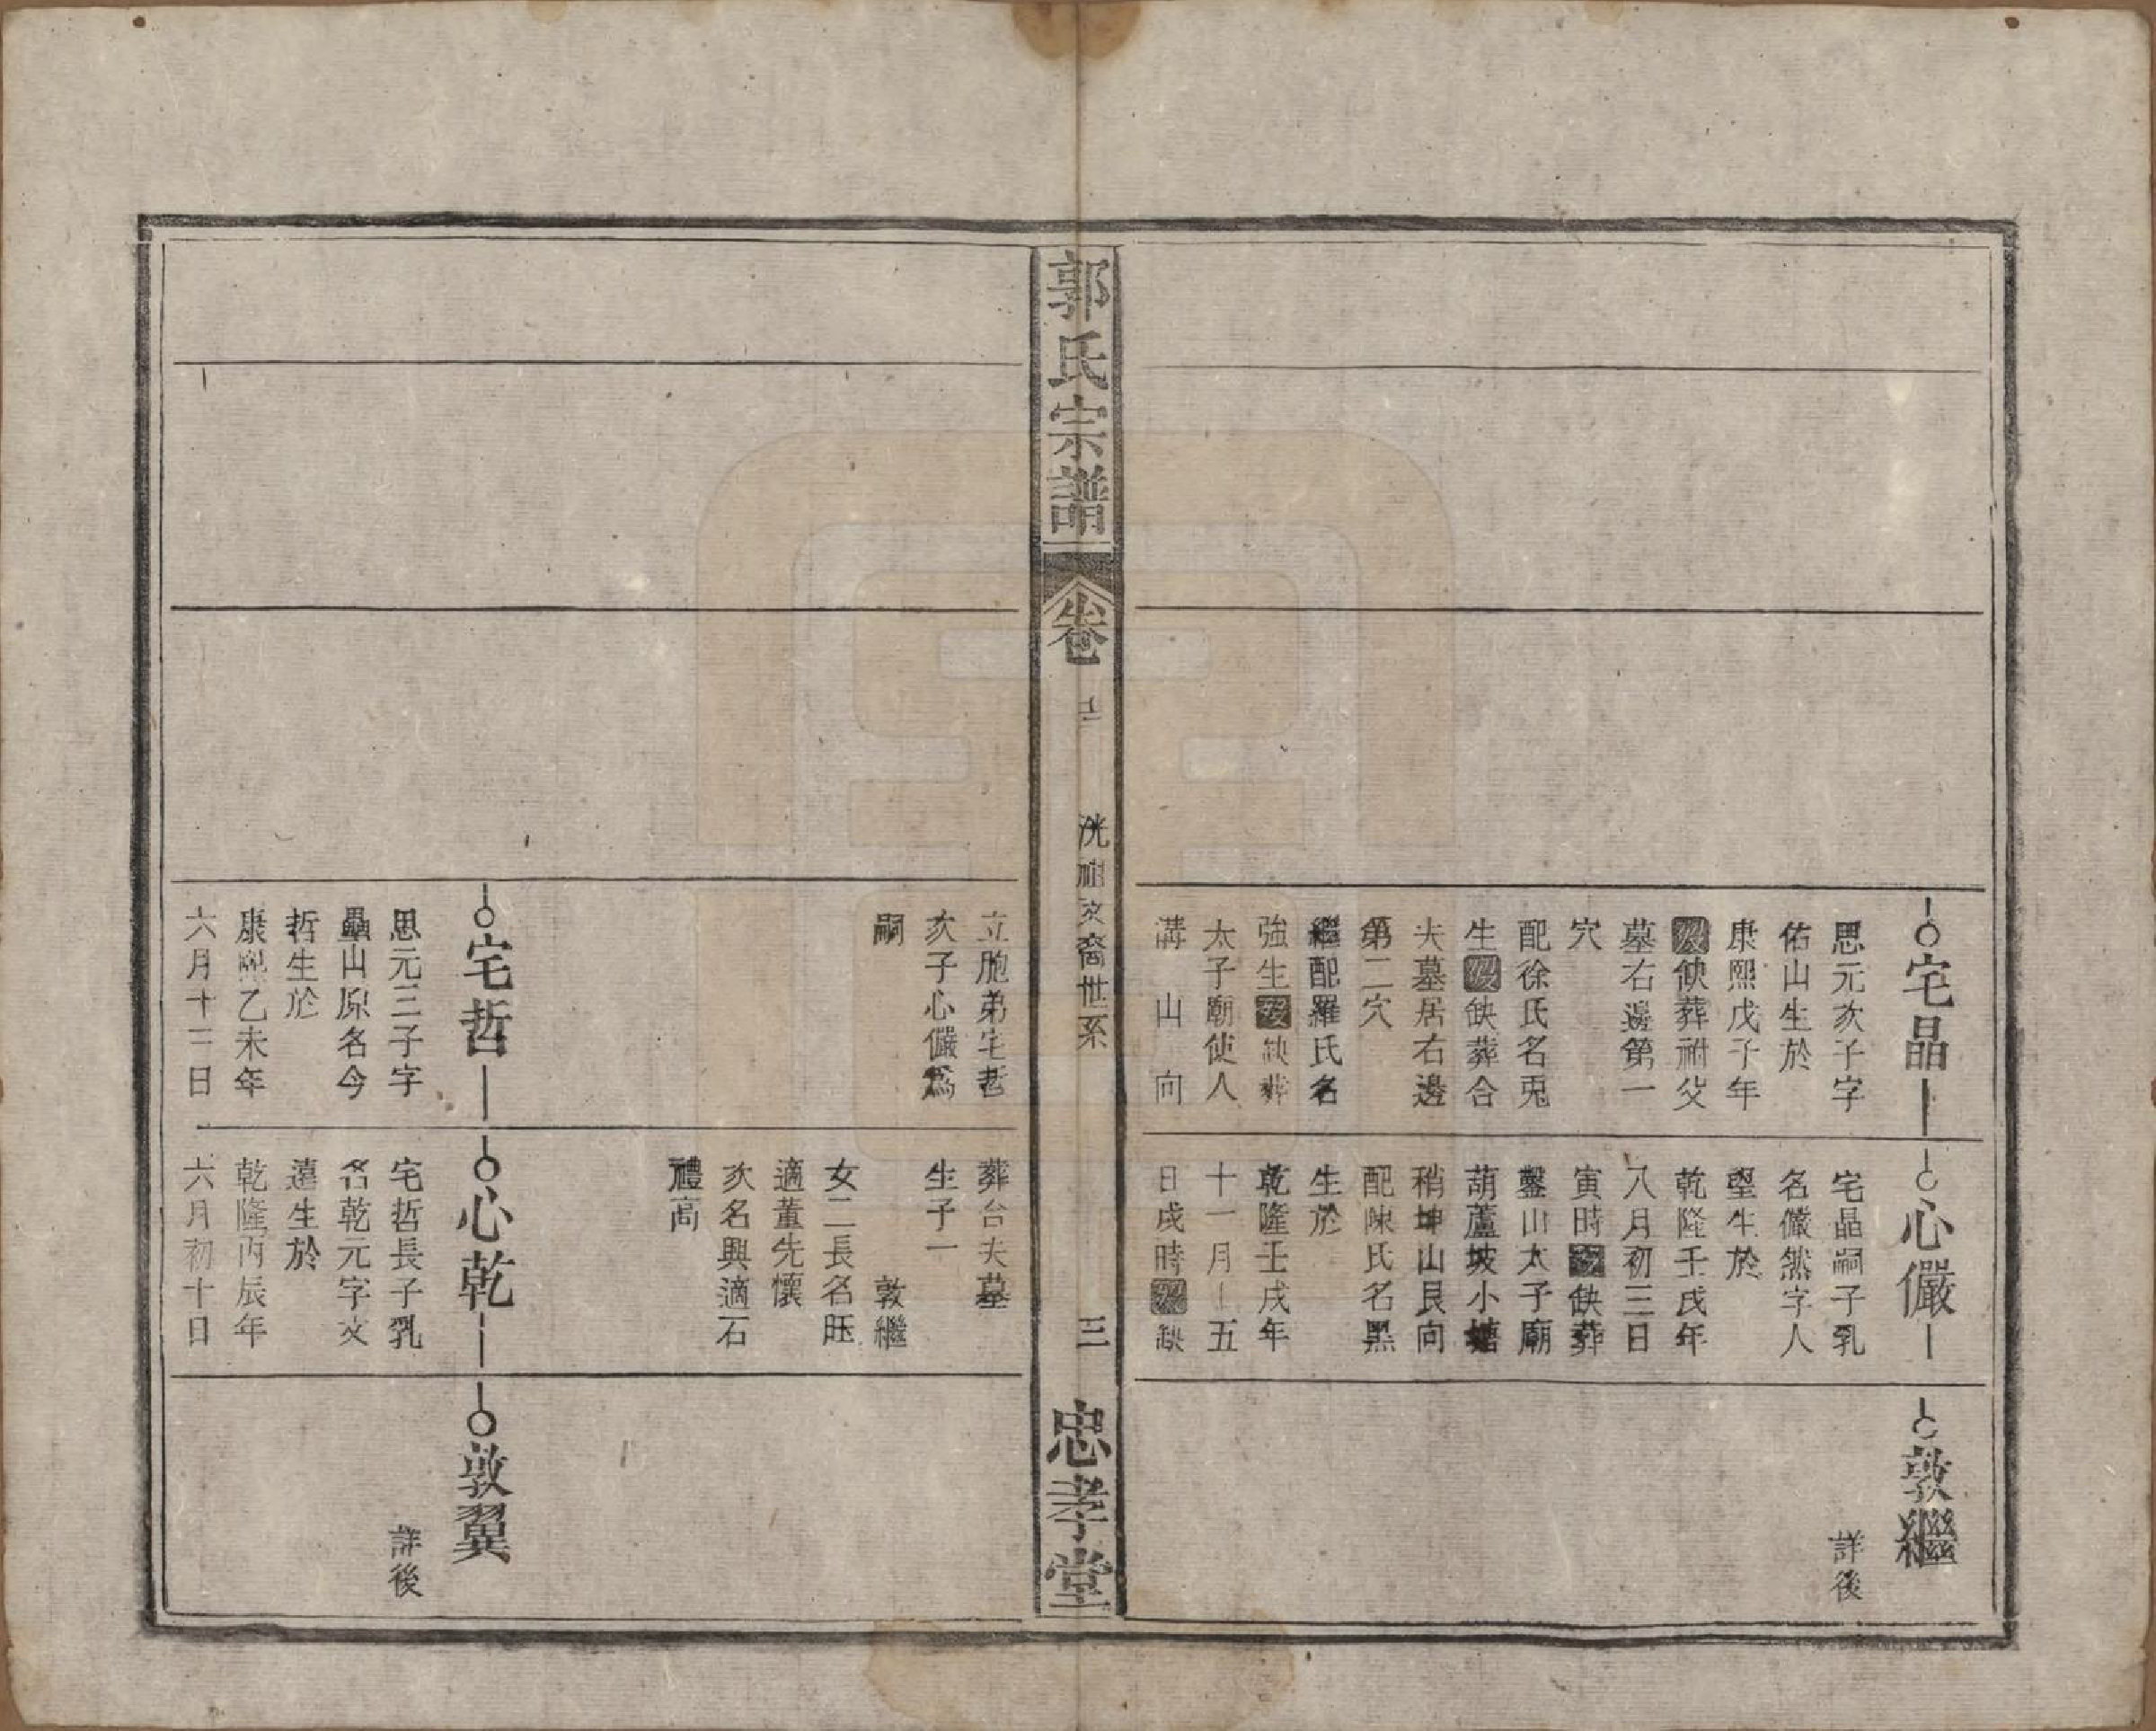 宅晶
思元次子字
佑山生於
康熙戊子年
歿缺葬祔父
墓右邊第一
穴
配徐氏名兎
生歿缺葬合
夫墓居右邊
第二穴
繼配羅氏名
強生歿缺葬
太子廟使人
溝山向
心儼
宅晶嗣子乳
名儼然字人
望生於
乾隆壬戌年
八月初三日
寅時歿缺葬
鑿山太子廟
葫蘆坡小塘
稍坤山艮向
配陳氏名黑
生於
乾隆壬戌年
十一月十五
日戌時歿缺
敦繼
詳後
郭氏宗譜
卷
洸祖文裔世系
三
忠孝堂
立胞弟宅哲
次子心儼爲
嗣
葬合夫墓
生子一
敦繼
女二長名旺
適董先懷
次名興適石
禮高
宅哲
思元三子字
壘山原名今
哲生於
康熙乙未年
六月十二日
心乾
宅哲長子乳
名乾元字文
遠生於
乾隆丙辰年
六月初十日
敦翼
詳後